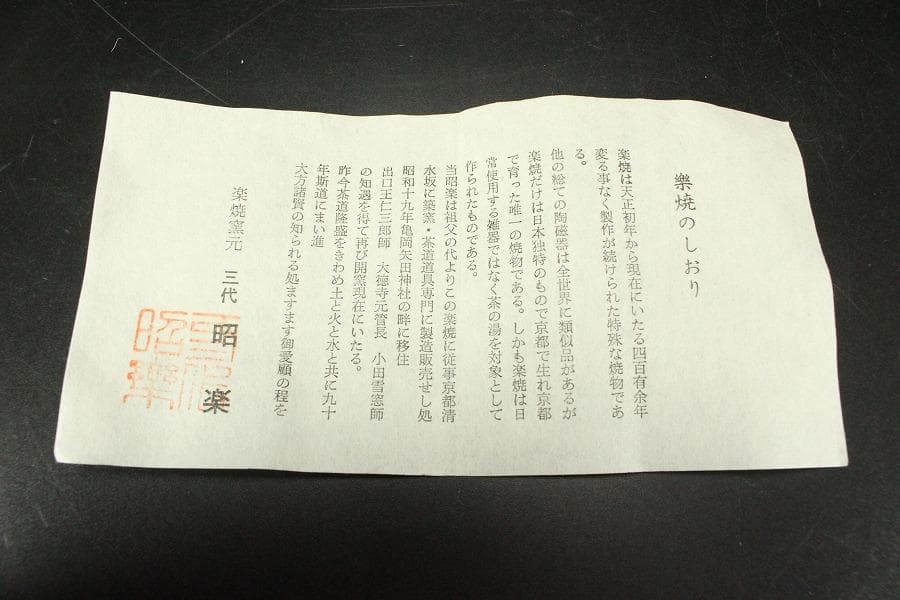 樂焼のしおり
楽焼は天正初年から現在にいたる四百有余年
変る事なく製作が続けられた特殊な焼物であ
る。
他の総ての陶磁器は全世界に類似品があるが
楽焼だけは日本独特のもので京都で生れ京都
で育った唯一の焼物である。しかも楽焼は日
常使用する雑器ではなく茶の湯を対象として
作られたものである。
当昭楽は祖父の代よりこの楽焼に従事京都清
水坂に築窯・茶道道具専門に製造販売せし処
昭和十九年亀岡矢田神社の畔に移住
出口王仁三郎師　大徳寺元管長　小田雪窓師
の知遇を得て再び開窯現在にいたる。
昨今茶道隆盛をきわめ土と火と水と共に九十
年斯道にまい進
大方諸賢の知られる処ますます御愛顧の程を
楽焼窯元　三代　昭楽